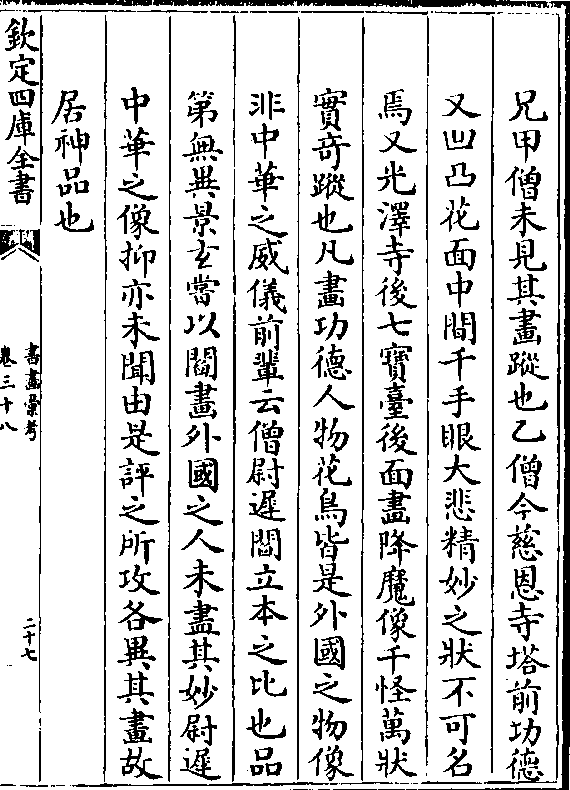 兄甲僧未見其畫蹤也乙僧今慈恩寺塔前功德
又凹凸花面中間千手眼大悲精妙之狀不可名
焉又光澤寺後七寶臺後面畫降魔像千怪萬狀
實奇蹤也凡畫功德人物花鳥皆是外國之物像
非中華之威儀前輩云僧尉遲閻立本之比也品
第無異景玄嘗以閻畫外國之人未盡其妙尉遲
中華之像抑亦未聞由是評之所攻各異其畫故
居神品也
欽定四庫全書
書畫彙考
卷三十八
二十七